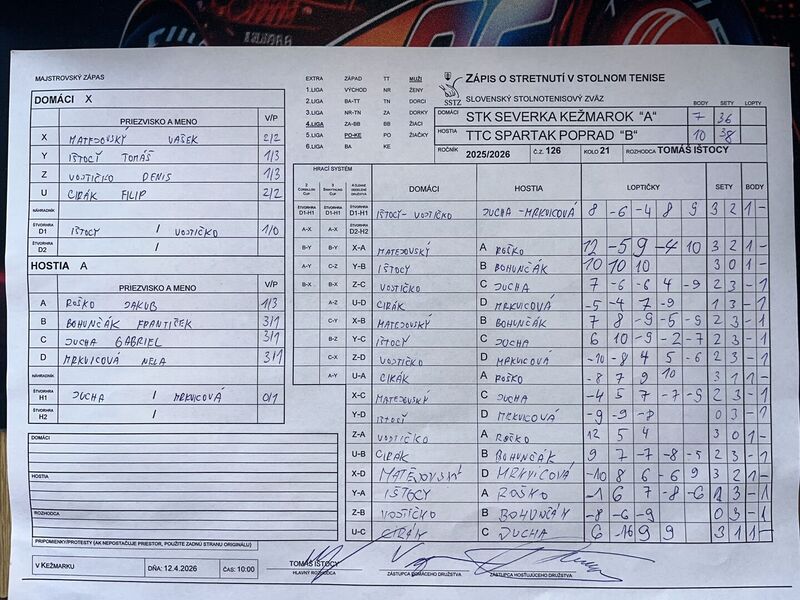 MAJSTROVSKÝ ZÁPAS
DOMÁCI X
PRIEZVISKO A MENO V/P
X MATEJOVSKÝ VAŠEK 2/2
Y IŠTOCÝ TOMÁŠ 1/3
Z VOJTIČKO DENIS 1/3
U CIRÁK FILIP 2/2
NÁHRADNÍK
ŠTVORHRA D1 IŠTOCÝ / VOJTIČKO 1/0
ŠTVORHRA D2 /
HOSTIA A
PRIEZVISKO A MENO V/P
A ROŠKO JAKUB 1/3
B BOHUNČÁK FRANTIŠEK 3/1
C JUCHA GABRIEL 3/1
D MRKVICOVÁ NELA 3/1
NÁHRADNÍK
ŠTVORHRA H1 JUCHA / MRKVICOVÁ 0/1
ŠTVORHRA H2 /
DOMÁCI
HOSTIA
ROZHODCA
PRIPOMIENKY/PROTESTY (AK NEPOSTAČUJE PRIESTOR, POUŽITE ZADNÚ STRANU ORIGINÁLU)
V KEŽMARKU DŇA: 12.4.2026 ČAS: 10:00
EXTRA ZÁPAD TT MUŽI
1.LIGA VÝCHOD NR ŽENY
2.LIGA BA-TT TN DORCI
3.LIGA NR-TN ZA DORKY
4.LIGA ZA-BB BB ŽIACI
5.LIGA PO-KE PO ŽIAČKY
6.LIGA BA KE
SSTZ
ZÁPIS O STRETNUTÍ V STOLNOM TENISE
SLOVENSKÝ STOLNOTENISOVÝ ZVÄZ BODY SETY LOPTY
DOMÁCI STK SEVERKA KEŽMAROK "A" 7 36
HOSTIA TTC SPARTAK POPRAD "B" 10 38
ROČNÍK 2025/2026 Č.Z. 126 KOLO 21 ROZHODCA TOMÁŠ IŠTOCY
HRACÍ SYSTÉM
DOMÁCI HOSTIA LOPTIČKY SETY BODY
ŠTVORHRA D1-H1 ŠTVORHRA D1-H1 ŠTVORHRA D1-H1 IŠTOCÝ - VOJTIČKO JUCHA - MRKVICOVÁ 8 -6 -4 8 9 3 2 1 -
A-X A-X ŠTVORHRA D2-H2
B-Y B-Y X-A MATEJOVSKÝ A ROŠKO 12 -5 9 -4 10 3 2 1 -
A-Y C-Z Y-B IŠTOCY B BOHUNČÁK 10 10 10 3 0 1 -
B-X B-X Z-C VOJTIČKO C JUCHA 7 -6 -6 4 -9 2 3 - 1
A-Z U-D CIRÁK D MRKVICOVÁ -5 -4 7 -9 1 3 - 1
C-Y X-B MATEJOVSKÝ B BOHUNČÁK 7 8 -9 -5 -9 2 3 - 1
B-Z Y-C IŠTOCY C JUCHA 6 10 -9 -2 -7 2 3 - 1
C-X Z-D VOJTIČKO D MRKVICOVÁ -10 -8 4 5 -6 2 3 - 1
A-Y U-A CIRÁK A ROŠKO -8 7 9 10 3 1 1 -
X-C MATEJOVSKÝ C JUCHA -4 5 7 -7 -9 2 3 - 1
Y-D IŠTOCÝ D MRKVICOVÁ -9 -9 -8 0 3 - 1
Z-A VOJTIČKO A ROŠKO 12 5 4 3 0 1 -
U-B CIRÁK B BOHUNČÁK 9 7 -7 -8 -5 2 3 - 1
X-D MATEJOVSKÝ D MRKVICOVÁ -10 8 6 -6 9 3 2 1 -
Y-A IŠTOCY A ROŠKO -1 6 7 -8 -6 2 3 - 1
Z-B VOJTIČKO B BOHUNČÁK -8 -6 -9 0 3 - 1
U-C CIRÁK C JUCHA 6 -16 9 9 3 1 1 -
TOMÁŠ IŠTOCY
HLAVNÝ ROZHODCA ZÁSTUPCA DOMÁCEHO DRUŽSTVA ZÁSTUPCA HOSŤUJÚCEHO DRUŽSTVA